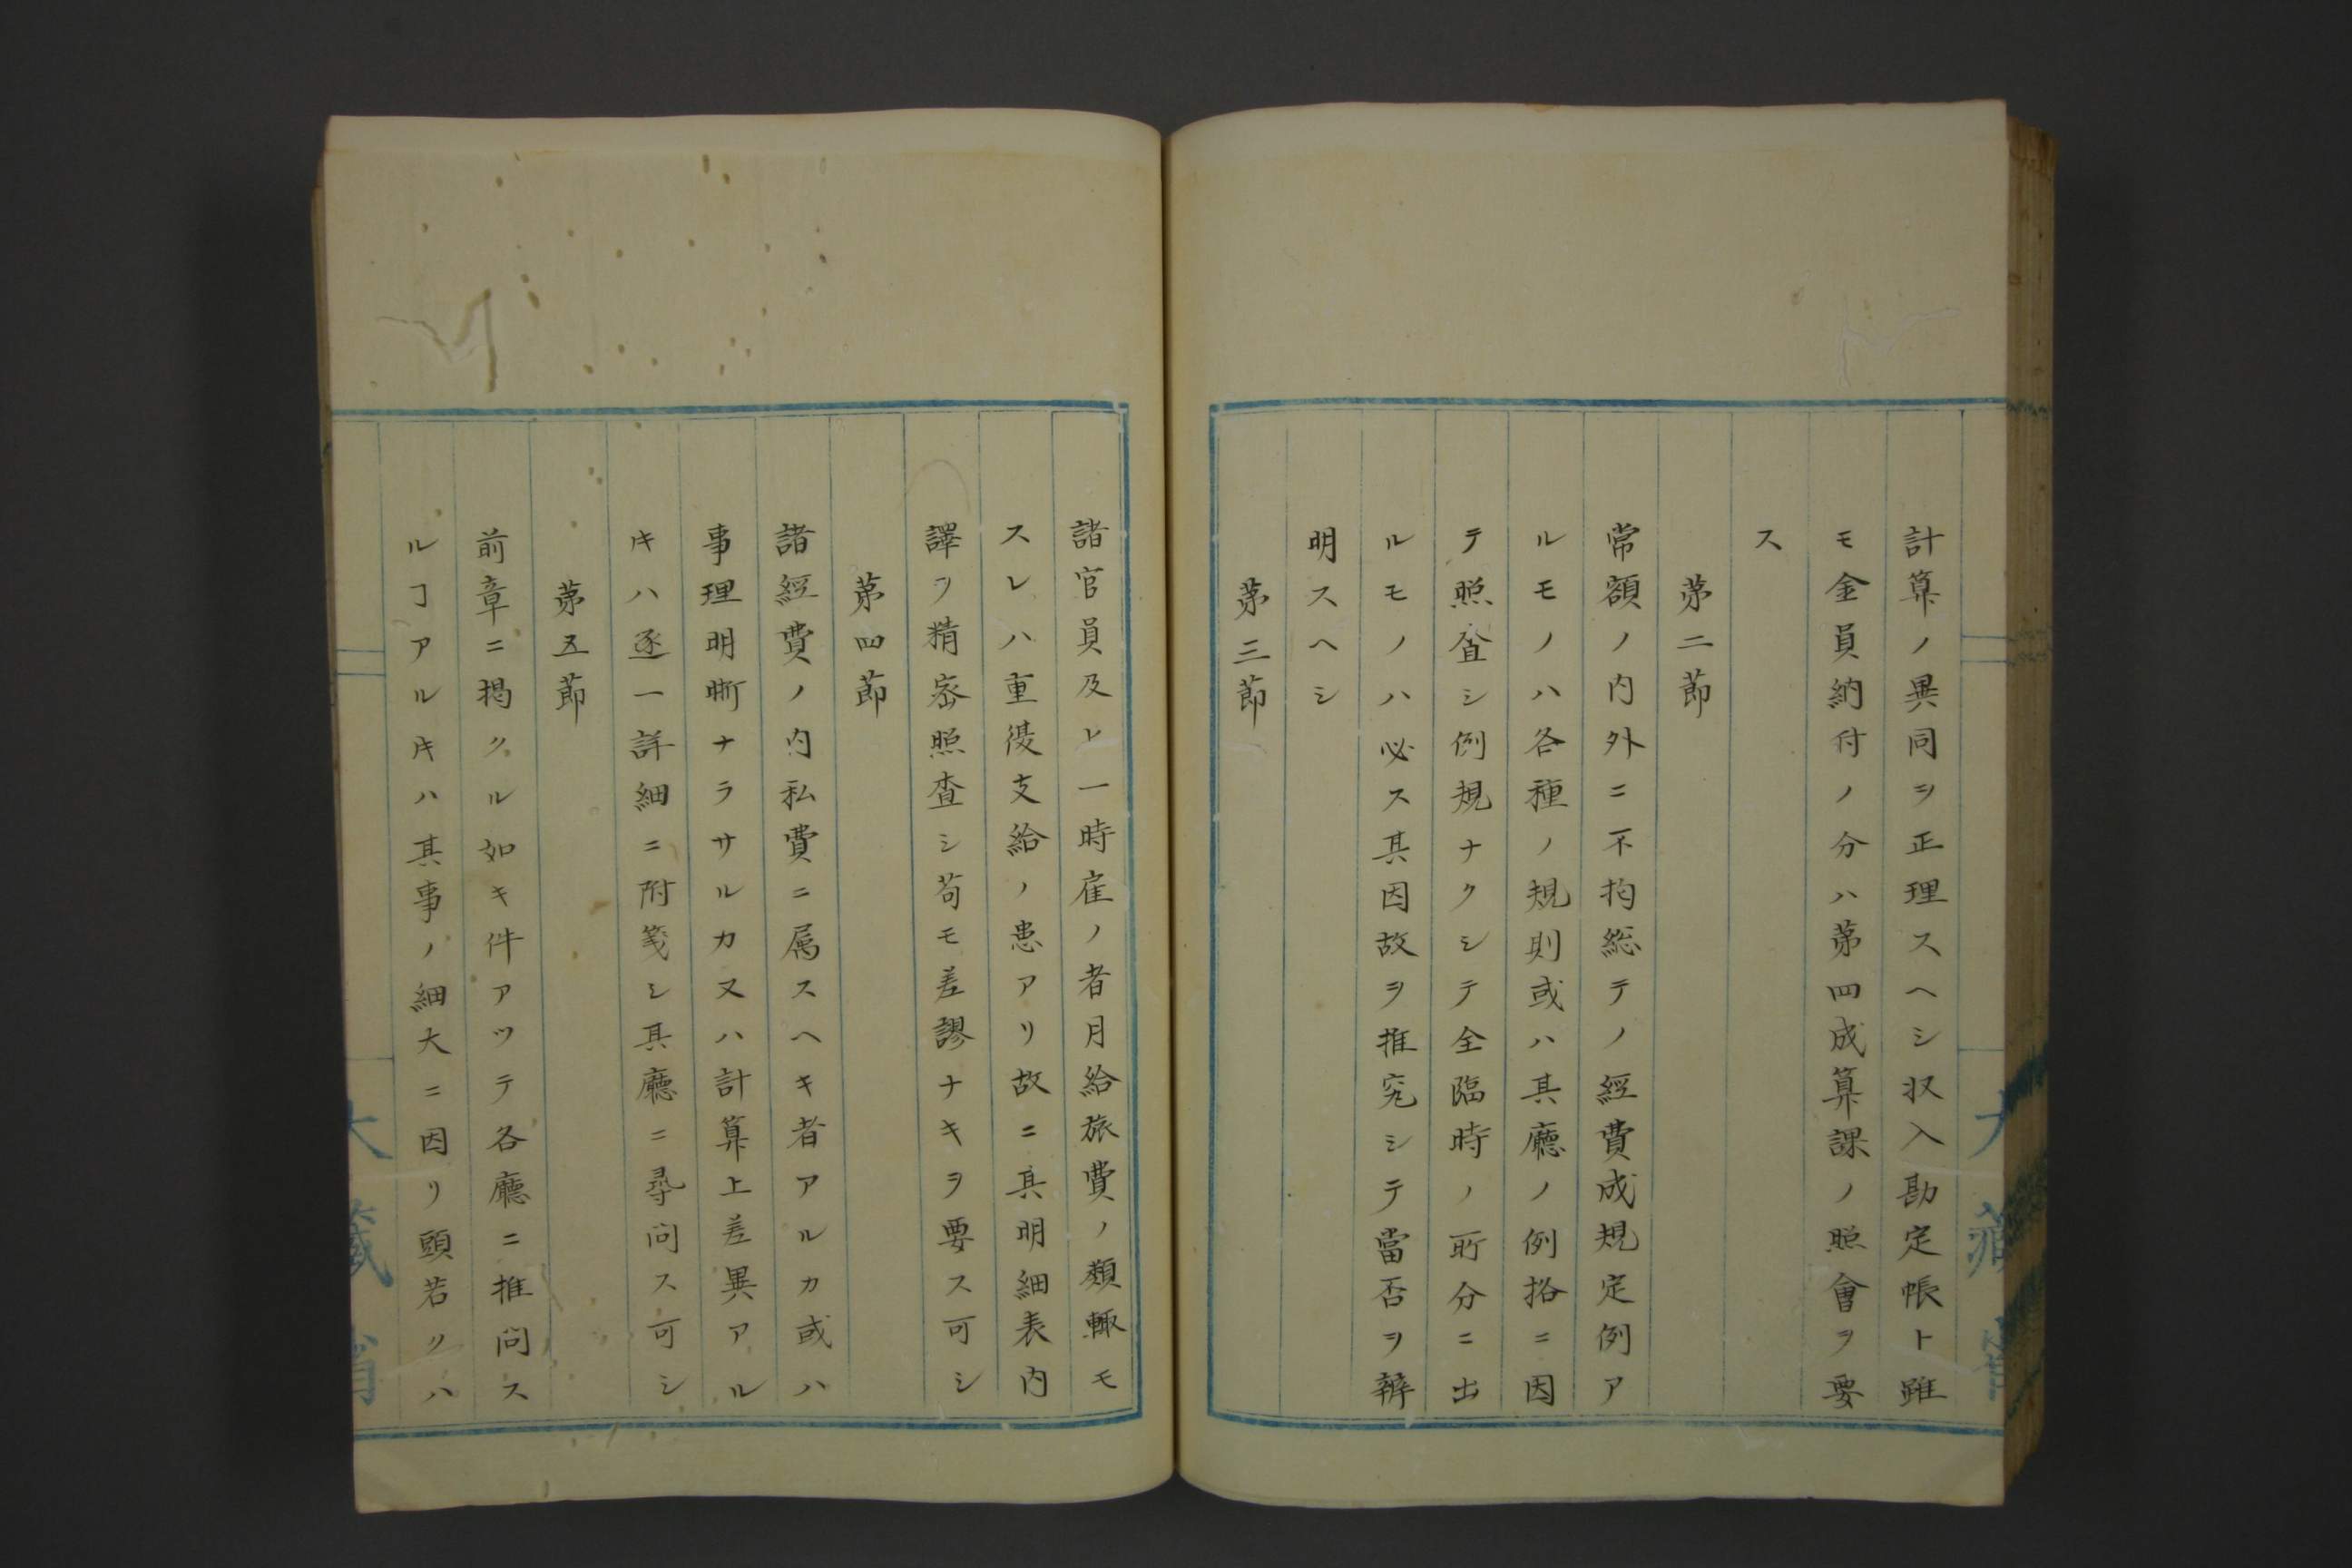 計算ノ異同ヲ正理スヘシ収入勘定帳ト雖
モ金員納付ノ分ハ第四成算課ノ照會ヲ要
ス
第二節
常額ノ内外ニ不拘総テノ經費成規定例ア
ルモノハ各種ノ規則或ハ其廳ノ例格ニ因
テ照査シ例規ナクシテ全臨時ノ所分ニ出
ルモノハ必ス其因故ヲ推究シテ當否ヲ辨
明スヘシ
第三節
諸官員及ヒ一時雇ノ者月給旅費ノ類輙モ
スレハ重復支給ノ患アリ故ニ其明細表内
譯ヲ精密照査シ苟モ差謬ナキヲ要ス可シ
第四節
諸經費ノ内私費ニ属スヘキ者アルカ或ハ
事理明晰ナラサルカ又ハ計算上差異アル
キハ逐一詳細ニ附箋シ其廳ニ尋問ス可シ
第五節
前章ニ掲クル如キ件アツテ各廳ニ推問ス
ルヿアルキハ其事ノ細大ニ因リ頭若クハ
大藏省